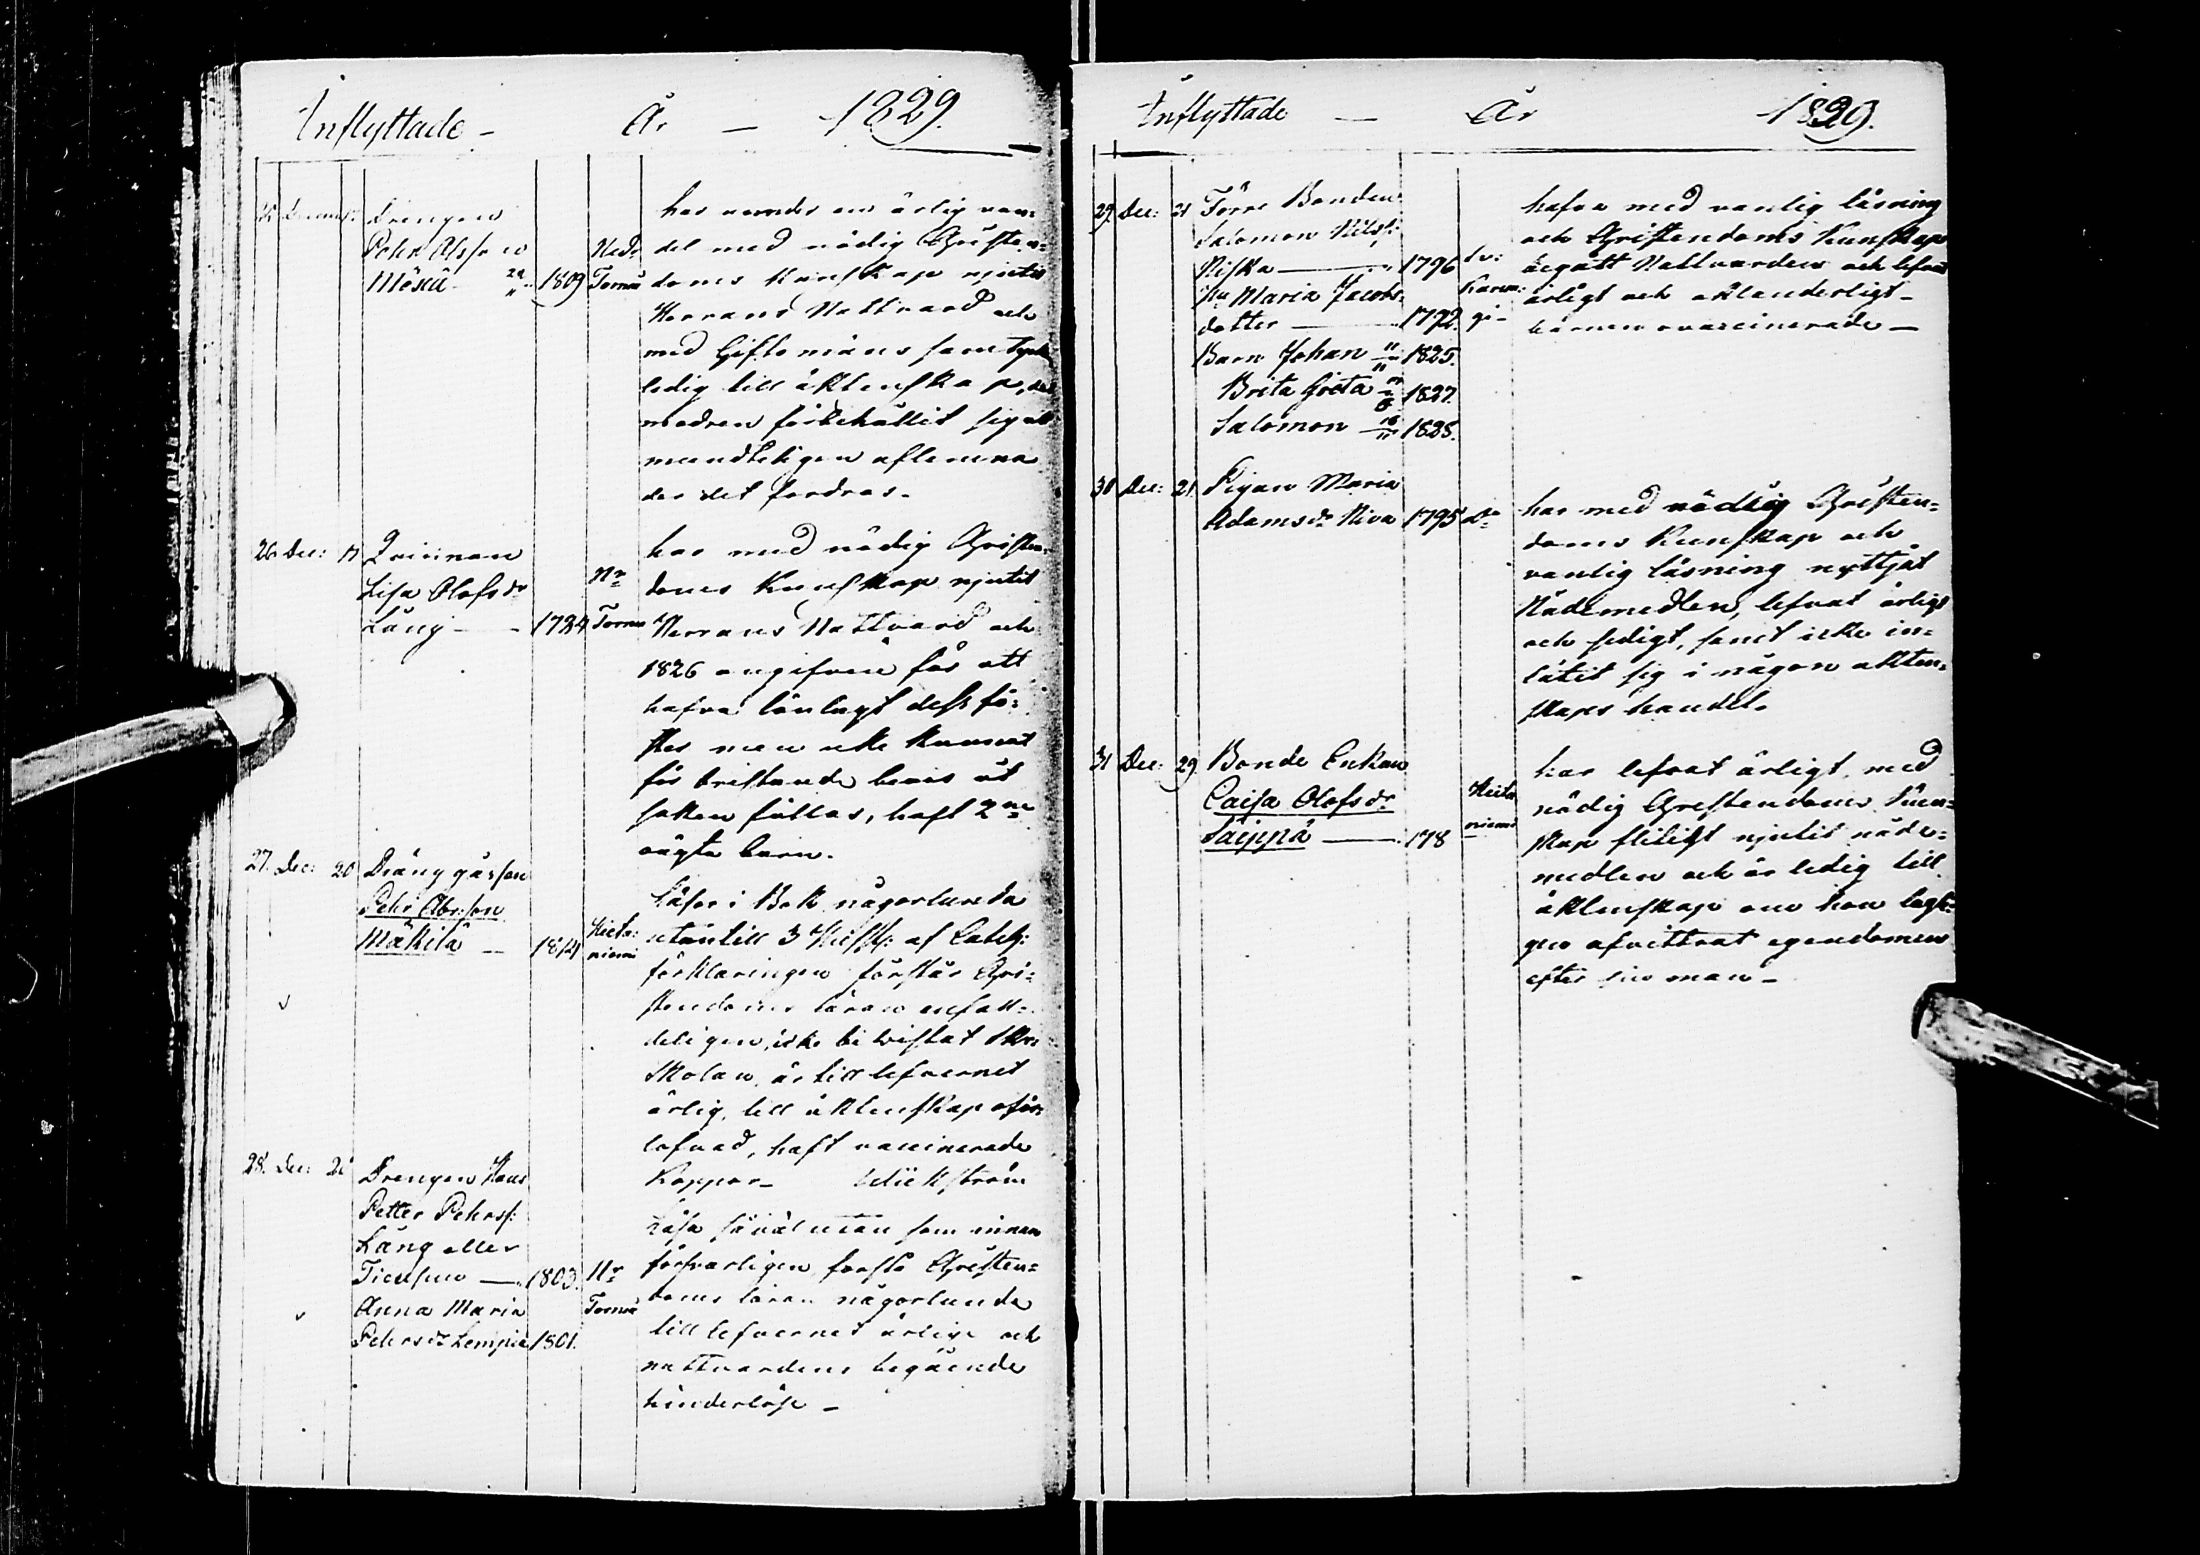 Inflyttade - År - 1829.
Drengen
Pehr Olsson
Möskü 1809
Nedr
Torneå
har med en ärlig van=
del med nödig Christen=
doms kunskap njutit
Herrans Nattvard och
med Giftomans samtycke
ledig till äktenskap,
modren förbehållit sig att
mundteligen aflemna
der det fordras.
26. Dec: 17 Qvinnan
Lisa Olofsdr
Lång - 1784
Nr
Torneå
har med nödig Christen=
doms kunskap njutit
Herrans Nattvard och
1826 angifven för att
hafva lönlagt dess fo=
ster men icke kunnat
för bristande bevis åt
saken fällas, haft 2ne
oägta barn.
27. Dec: 20 Dräng gåssen
Pehr Abr:son
Mäkitä - 1814
Hieta=
niemi
Läser i Bok någorlunda
utantill 3 Huf.st: af Catech:
förklaringen förstår Chri=
stendoms läran enfal=
deligen, icke bevistat Skr:
Skolan, är till lefvernet
ärlig, till äktenskap oför=
lofvad, haft vaccinerade
Koppor -
28. Dec: 21 Drengen Hans
Petter Pehrss:
Lång eller
Tiensuu - 1803.
Anna Maria
Pehrsdr Lempiä 1801.
Nr
Torneå
Läsa såväl utan som innan
försvarligen förstå Christen=
doms läran någorlunda
till lefvernet ärlige och
nattvardens begående
hinderlöse -
Inflyttade - År 1829.
29. Dec: 21 Torre Bonden
Salomon Nilss:
Niska - 1796
Hu Maria Jacobs
dotter - 1792.
Barn Johan 11/11 1825.
Brita Greta 1827.
Salomon 16/11 1828.
Öv:
Karun=
gi -
hafva med vanlig läsning
och Christendoms kunskap
begått Nattvarden och lefvat
ärligt och oklanderligt -
barnen ovaccinerade -
30 Dec: 21. Pigan Maria
Adamsdr Niva 1795 Do
har med nödig Christen=
doms kunskap och
vanlig läsning nyttjat
Nådemedlen, lefvat ärligt
och sedigt, samt icke in=
låtit sig i någon akten=
skaps handel.
31 Dec: 29. Bonde Enkan
Caisa Olofsdr
Säippä - 178
Hieta
niemi
har lefvat ärligt, med
nödig Christendoms kun=
skap flitigt njutit nåde=
medlen och är ledig till
äktenskap om hon lagli=
gen afvittrat egendomen
efter sin man -